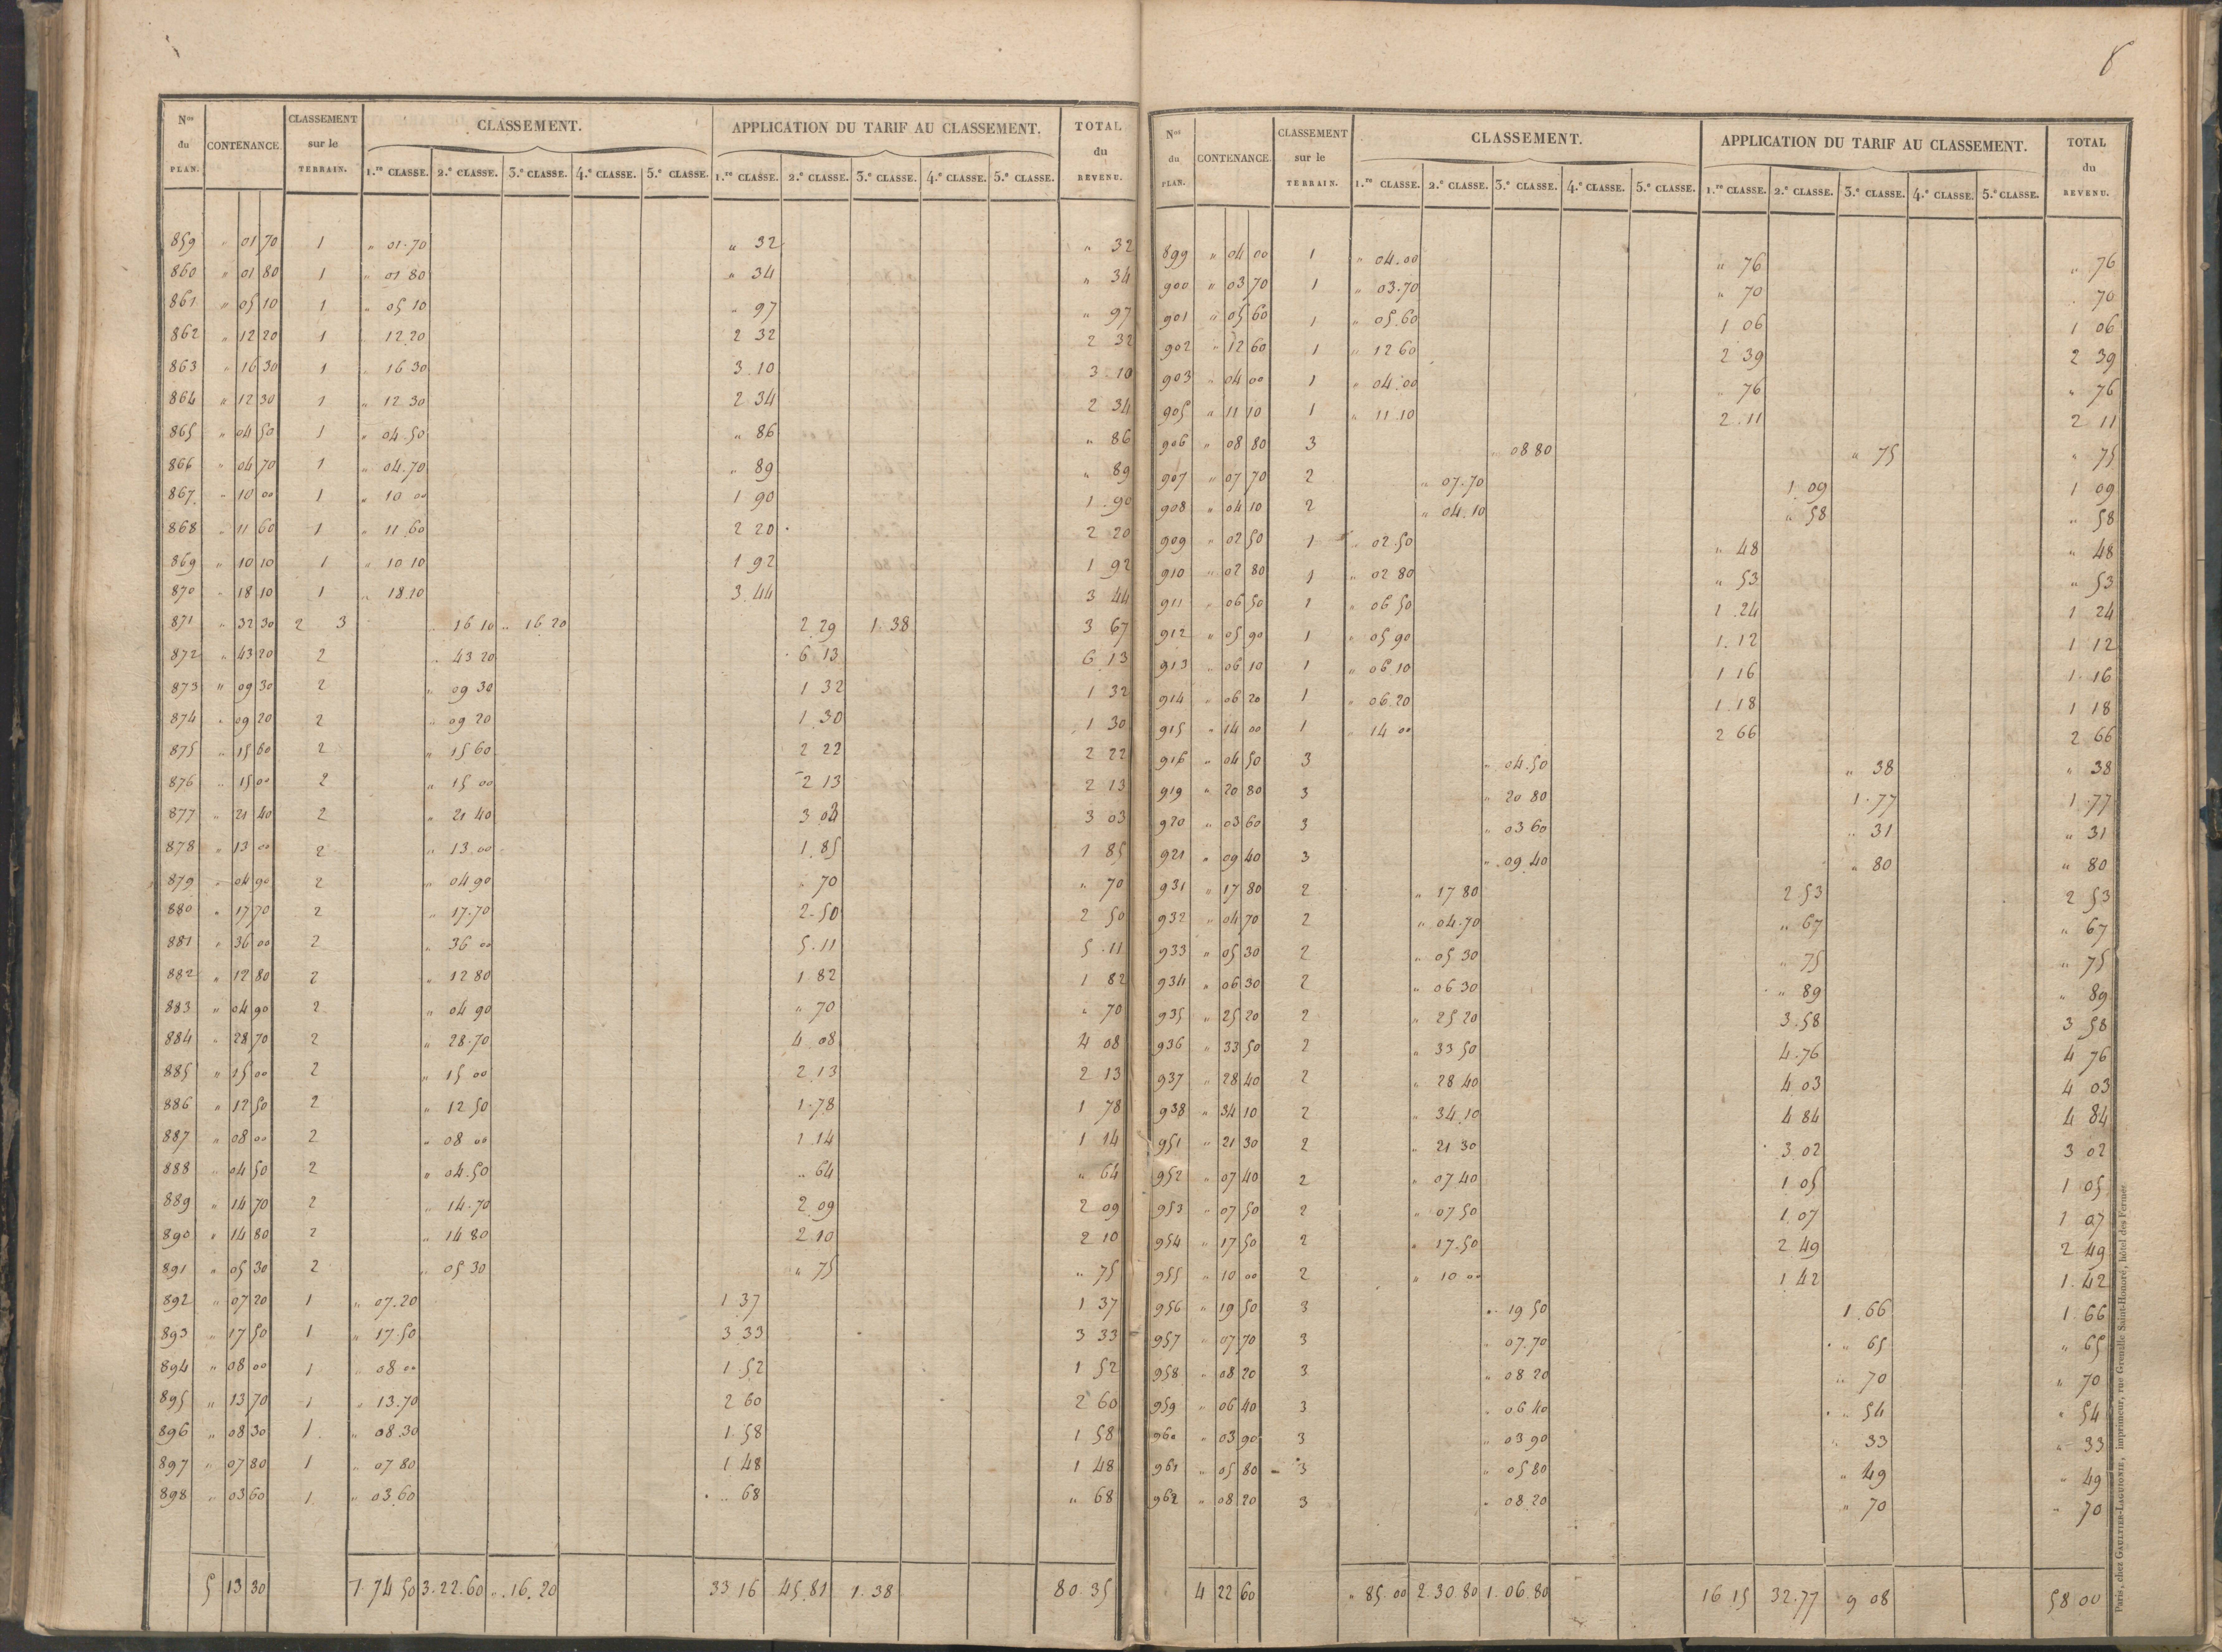 8
Nos du PLAN. CONTENANCE. CLASSEMENT sur le TERRAIN. CLASSEMENT. APPLICATION DU TARIF AU CLASSEMENT. TOTAL du REVENU.
1.re CLASSE. 2.e CLASSE. 3.e CLASSE. 4.e CLASSE. 5.e CLASSE. 1.re CLASSE. 2.e CLASSE. 3.e CLASSE. 4.e CLASSE. 5.e CLASSE.
859 " 01 70 1 " 01.70 " 32 " 32
860 " 01 80 1 " 01 80 " 34 " 34
861 " 05 10 1 " 05 10 " 97 " 97
862 " 12 20 1 12 20 2 32 2 32
863 " 16 30 1 " 16 30 3.10 3.10
864 " 12 30 1 " 12 30 2 34 2 34
865 " 04 50 1 " 04.50 " 86 " 86
866 " 04 70 1 " 04.70 " 89 " 89
867 " 10 00 1 " 10 00 1 90 1.90
868 " 11 60 1 " 11.60 2 20 2 20
869 " 10 10 1 " 10 10 1 92 1 92
870 " 18 10 1 " 18.10 3.44 3 44
871 " 32 30 2 3 " 16 10 " 16 20 2 29 1.38 3 67
872 " 43 20 2 " 43 20 6 13 6 13
873 " 09 30 2 " 09 30 1 32 1 32
874 " 09 20 2 " 09 20 1.30 1 30
875 " 15 60 2 " 15 60 2 22 2 22
876 " 15 00 2 " 15 00 2 13 2 13
877 " 21 40 2 " 21 40 3 03 3 03
878 " 13 00 2 " 13.00 1.85 1 85
879 " 04 90 2 " 04 90 " 70 " 70
880 " 17 70 2 " 17.70 2.50 2 50
881 " 36 00 2 " 36 00 5.11 5.11
882 " 12 80 2 " 12 80 1 82 1 82
883 " 04 90 2 " 04 90 " 70 " 70
884 " 28 70 2 " 28.70 4 08 4 08
885 " 15 00 2 " 15 00 2.13 2 13
886 " 12 50 2 " 12 50 1.78 1 78
887 " 08 00 2 " 08 00 1.14 1 14
888 " 04 50 2 " 04.50 " 64 " 64
889 " 14 70 2 " 14.70 2.09 2 09
890 " 14 80 2 " 14 80 2.10 2 10
891 " 05 30 2 " 05 30 " 75 " 75
892 " 07 20 1 " 07.20 1.37 1 37
893 " 17 50 1 " 17.50 3 33 3 33
894 " 08 00 1 " 08 00 1.52 1 52
895 " 13 70 1 " 13.70 2 60 2 60
896 " 08 30 1 " 08.30 1.58 1 58
897 " 07 80 1 " 07 80 1 48 1 48
898 " 03 60 1 " 03.60 " 68 " 68
5 13 30 1.74 50 3.22.60 " 16.20 33 16 45.81 1.38 80.35
Nos du PLAN. CONTENANCE. CLASSEMENT sur le TERRAIN. CLASSEMENT. APPLICATION DU TARIF AU CLASSEMENT. TOTAL du REVENU.
1.re CLASSE. 2.e CLASSE. 3.e CLASSE. 4.e CLASSE. 5.e CLASSE. 1.re CLASSE. 2.e CLASSE. 3.e CLASSE. 4.e CLASSE. 5.e CLASSE.
899 " 04 00 1 " 04.00 " 76 " 76
900 " 03 70 1 " 03.70 " 70 " 70
901 " 05 60 1 " 05.60 1 06 1 06
902 " 12 60 1 " 12 60 2 39 2 39
903 " 04 00 1 " 04.00 " 76 " 76
905 " 11 10 1 " 11.10 2.11 2 11
906 " 08 80 3 " 08 80 " 75 " 75
907 " 07 70 2 " 07.70 1.09 1 09
908 " 04 10 2 " 04.10 " 58 " 58
909 " 02 50 1 " 02.50 " 48 " 48
910 " 02 80 1 " 02 80 " 53 " 53
911 " 06 50 1 " 06 50 1.24 1 24
912 " 05 90 1 " 05 90 1.12 1 12
913 " 06 10 1 " 06 10 1 16 1.16
914 " 06 20 1 " 06.20 1.18 1 18
915 " 14 00 1 " 14 00 2 66 2 66
916 " 04 50 3 " 04.50 " 38 " 38
919 " 20 80 3 " 20 80 1.77 1.77
920 " 03 60 3 " 03 60 " 31 " 31
921 " 09 40 3 " 09 40 " 80 " 80
931 " 17 80 2 " 17 80 2 53 2 53
932 " 04 70 2 " 04.70 " 67 " 67
933 " 05 30 2 " 05 30 " 75 " 75
934 " 06 30 2 " 06 30 " 89 " 89
935 " 25 20 2 " 25 20 3.58 3 58
936 " 33 50 2 " 33 50 4.76 4 76
937 " 28 40 2 " 28 40 4 03 4 03
938 " 34 10 2 " 34.10 4 84 4 84
951 " 21 30 2 " 21 30 3.02 3 02
952 " 07 40 2 " 07 40 1 05 1 05
953 " 07 50 2 " 07 50 1.07 1 07
954 " 17 50 2 " 17.50 2 49 2 49
955 " 10 00 2 " 10 00 1 42 1.42
956 " 19 50 3 " 19 50 1.66 1.66
957 " 07 70 3 " 07.70 " 65 " 65
958 " 08 20 3 " 08 20 " 70 " 70
959 " 06 40 3 " 06 40 " 54 " 54
960 " 03 90 3 " 03 90 " 33 " 33
961 " 05 80 3 " 05 80 " 49 " 49
962 " 08 20 3 " 08.20 " 70 " 70
4 22 60 " 85.00 2.30 80 1.06.80 16 15 32.77 9 08 58 00
Paris, chez GAULTIER-LAGUIONIE, imprimeur, rue Grenelle Saint-Honoré, hôtel des Fermes